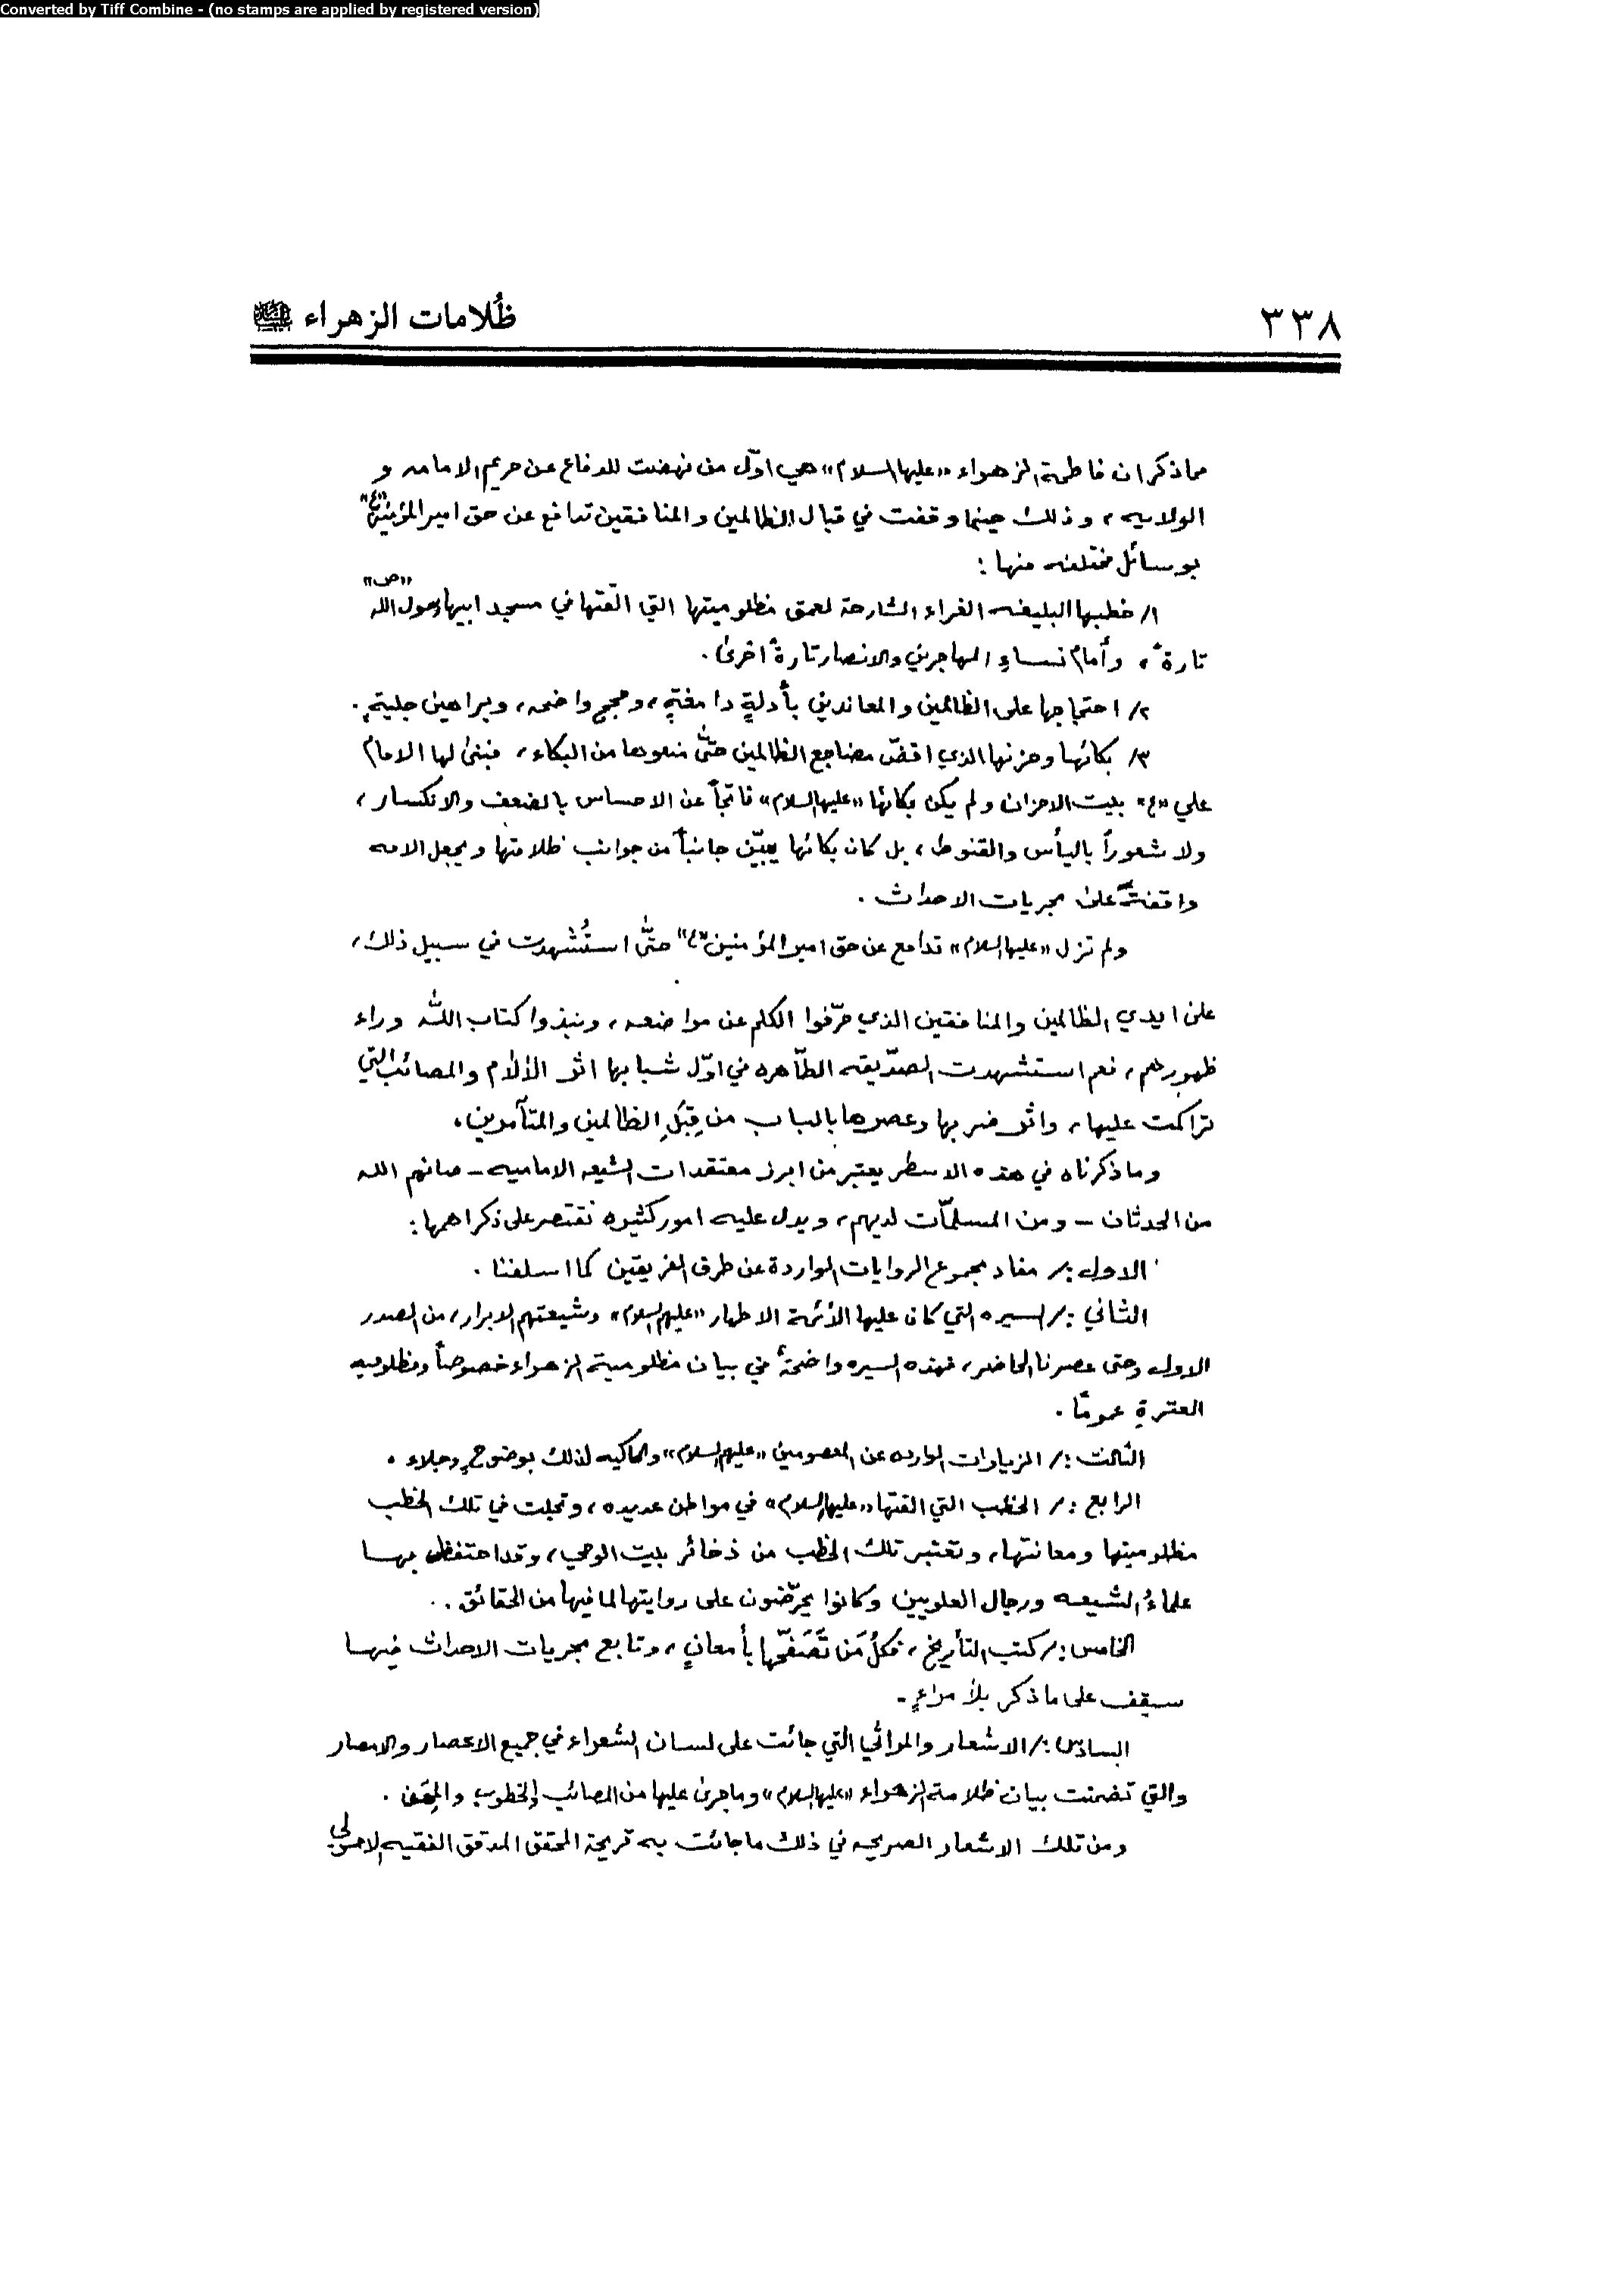 Converted by Tiff Combine - (no stamps are applied by registered version)
٣٣٨
ظُلامات الزهراء
مما ذكر ان فاطمة الزهراء «عليها السلام» هي اوّل من نهضت للدفاع عن حريم الامامه و
الولايه، وذلك حينما وقفت في قبال الظالمين والمنافقين تدافع عن حق امير المؤمنين «ع»
بوسائل مختلفه منها:
١/ خطبها البليغه الغراء الشارحة لعمق مظلوميتها التي القتها في مسجد ابيها رسول الله «ص»
تارةً، وأمام نساءِ المهاجرين والانصار تارةً اخرىٰ.
٢/ احتجاجها على الظالمين والمعاندين بأدلةٍ دامغةٍ، وحججٍ واضحه، وبراهين جليةٍ.
٣/ بكائها وحزنها الذي اقضّ مضاجع الظالمين حتّىٰ منعوها من البكاء، فبنىٰ لها الامام
علي «ع» بيت الاحزان ولم يكن بكائها «عليها السلام» ناتجاً عن الاحساس بالضعف والانكسار،
ولا شعوراً باليأس والقنوط، بل كان بكائها يبيّن جانباً من جوانب ظلامتها ويجعل الامه
واقفةً علىٰ مجريات الاحداث.
ولم تزل «عليها السلام» تدافع عن حق امير المؤمنين «ع» حتّىٰ استُشْهدت في سبيل ذلك،
علىٰ ايدي الظالمين والمنافقين الذي حرّفوا الكلم عن مواضعه، ونبذوا كتاب اللّه وراء
ظهورهم، نعم استشهدت الصدّيقه الطّاهره في اوّل شبابها اثر الآلام والمصائب التي
تراكمت عليها، واثر ضربها وعصرها بالباب من قِبَلِ الظالمين والمتآمرين.
وما ذكرناه في هذه الاسطر يعتبر من ابرز معتقدات الشيعه الاماميه - صانهم الله
من الحدثان - ومن المسلمّات لديهم، ويدل عليه امور كثيره نقتصر على ذكر اهمها:
الاول :/ مفاد مجموع الروايات الواردة عن طرق الفريقين كما اسلفنا.
الثاني :/ السيره التي كان عليها الأئمة الاطهار «عليهم السلام» وشيعتهم الابرار، من الصدر
الاول وحتى عصرنا الحاضر، فهذه السيره واضحةٌ في بيان مظلومية الزهراء خصوصاً ومظلوميه
العترةِ عموماً.
الثالث :/ الزيارات الوارده عن المعصومين «عليهم السلام» والحاكيه لذلك بوضوحٍ وجلاء.
الرابع :/ الخطب التي القتها «عليها السلام» في مواطن عديده، وتجلت في تلك الخطب
مظلوميتها ومعانتها، وتعتبر تلك الخطب من ذخائر بيت الوحي، وقد احتفظ بها
علماءُ الشيعه ورجال العلويين وكانوا يحرّضون على روايتها لما فيها من الحقائق..
الخامس :/ كتب التأريخ، فكلُ مَن تَصَفّحَها بأمعانٍ، وتابع مجريات الاحداث فيها
سيقف على ما ذكر بلا مراءٍ.
السادس :/ الاشعار والمراثي التي جائت على لسان الشعراء في جميع الاعصار والامصار
والتي تضمنت بيان ظلامة الزهراء «عليها السلام» وما جرىٰ عليها من المصائب والخطوب والمِحَن.
ومن تلك الاشعار الصريحه في ذلك ما جائت به قريحة المحقق المدقق الفقيه الاصولي